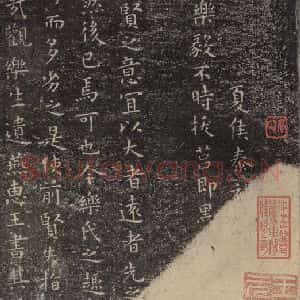 夏侯泰
樂毅不時拔莒即墨
賢之意宜以大者遠者先之
然後已焉可也今樂氏之趣
而多劣之是使前賢失指
觀樂生遺燕惠王書其
Shufawang.CN